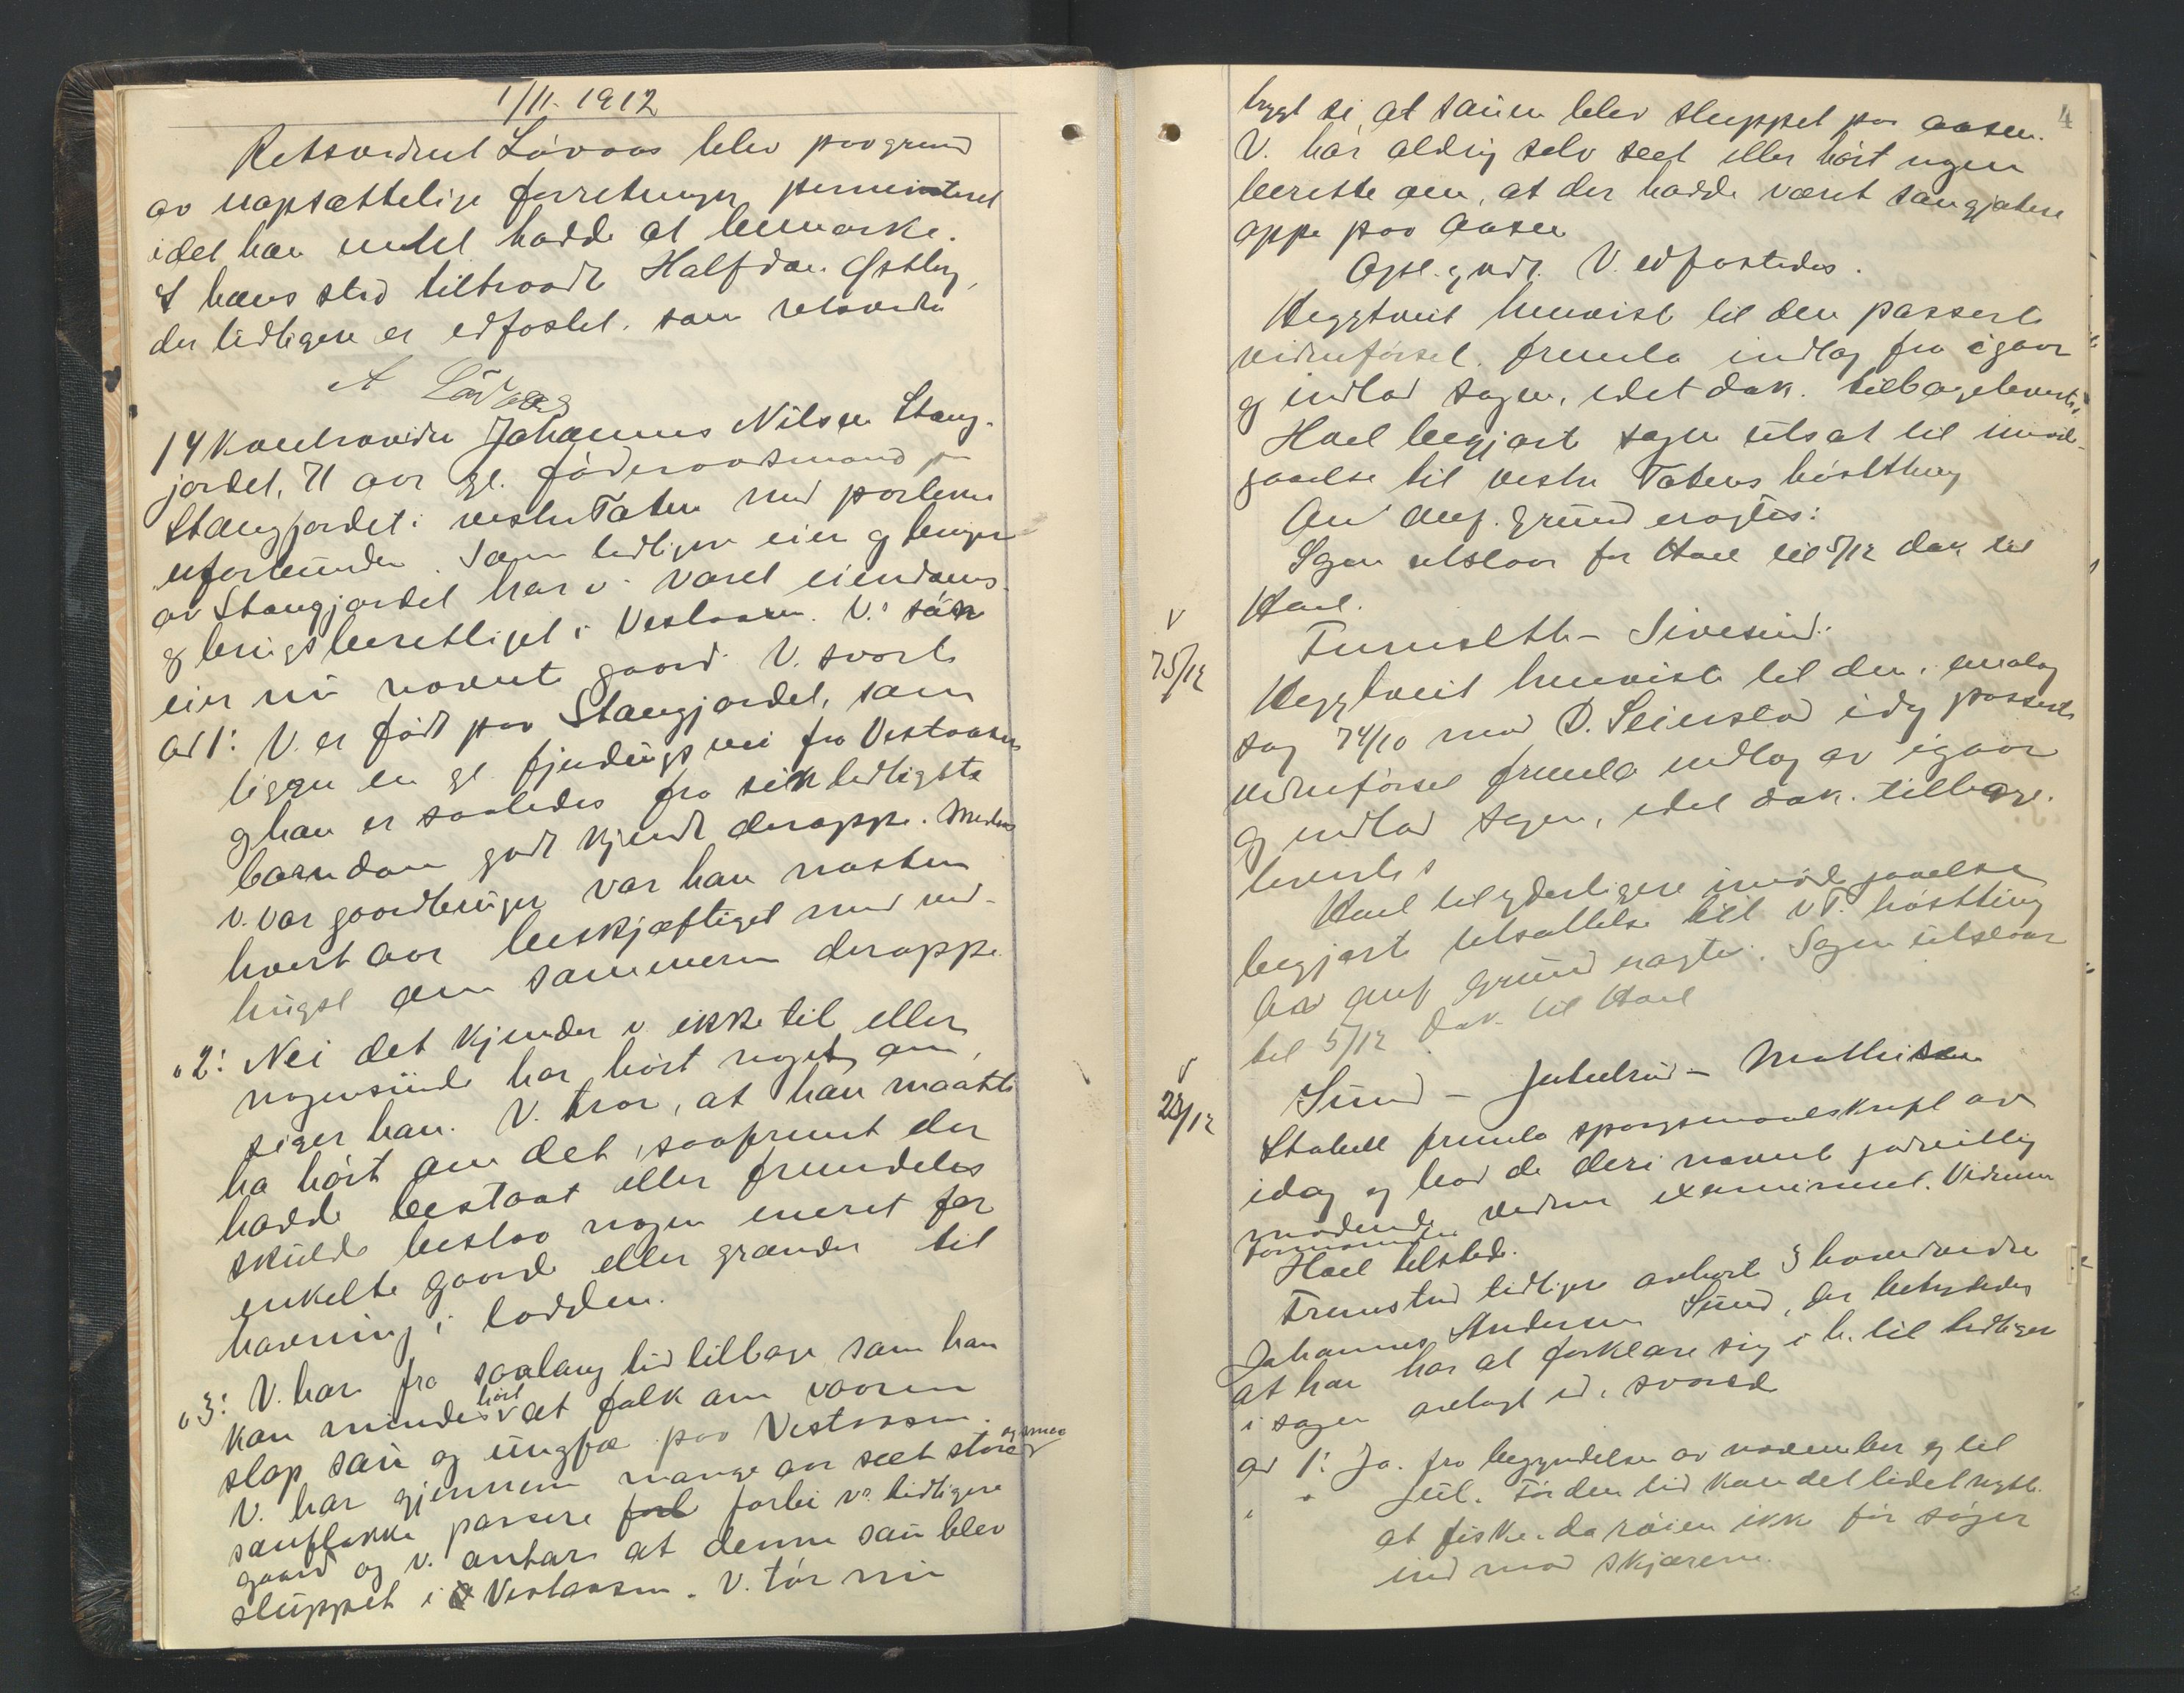 1/11. 1912
Retsvidnet Lövaas blev paa grund
av uopsættelige forretninger permitteret
idet han intet hadde at bemærke.
I hans sted tiltraadte Halfdan Østby
der tidligere er edfæstet som retsvidne
A Lövaas
14 Kontravidne Johannes Nilsen Stang-
jordet, 71 aar gl. föderaadsmand paa
Stangjordet i vestre Toten med parterne
uforbunden. Som tidligere eier og bruger
av Stangjordet har v. været eiendoms-
og brugsberettiget i Vestaasen. V.s sön
eier nu nævnte gaard. V. svarte
ad 1: V. er född paa Stangjordet, som
ligger en gl. fjerdings vei fra Vestaasen
og han er saaledes fra sin tidligste
barndom godt kjendt deroppe. Mens
v. var gaardbruger var han næsten
hvert aar beskjæftiget med ved-
hugst om sommeren deroppe.
" 2: Nei det kjender v ikke til eller
nogensinde har hört noget om,
siger han. V. tror, at han maatte
ha hört om det, saafremt der
hadde bestaat eller fremdeles
skulde bestaa nogen eneret for
enkelte gaarde eller grænder til
havning i lodden.
" 3: V. har fra saalang tid tilbage som han
kan mindes hört at folk om vaaren
slap sau og ungfæ paa Vestaasen.
V. har gjennem mange aar seet store og smaa
sauflokke passere forbi v.s tidligere
gaard og v. antar at denne sau blev
sluppet i Vestaasen. V. tör nu
4
trygt si at sauen blev sluppet paa aasen.
V. har aldrig selv seet eller hört nogen
berette om, at der hadde været saugjætere
oppe paa Aasen
Opl. g vedt. V. edfæstedes.
Heggtveit henviste til den passerte
vidneförsel. fremla indlæg fra igaar
og indlod sagen, idet dok. tilbageleverte
Hoel begjærte sagen utsat til imöde-
gaaelse til vestre Totens höstting
Av anf. grund eragtes:
Sagen utstaar for Hoel til 5/12 dok til
Hoel.
v
75/12
Furuseth - Sivesind.
Heggtveit henviste til den i analog
sag 74/10 mod D. Seierstad idag passerte
vidneförsel fremla indlæg av igaar
og indlod sagen, idet dok. tilbage-
levertes
Hoel til yderligere imödegaaelse
begjærte utsættelse til v T. höstting
Av anf grund eragtes: Sagen utstaar
til 5/12 Dok. til Hoel
v
23/12
Sund - - Mathisen
Stabell fremla spörgsmaalskrift av
idag og bad de deri nævnte godvillig
mödende vidner examineret. Vidnerne
Hoel tilstede.
Fremstod tidligere avhört 3 hovedvidne
Johannes Andersen Sund, der betydedes
at han har at forklare sig i h. til tidligere
i sagen avlagt ed. svared
ad 1: Ja. fra begyndelsen av november og til
" " Jul. För den tid kan det lidet nytte
at fiske da röien ikke för söger
ind mod skjærene.